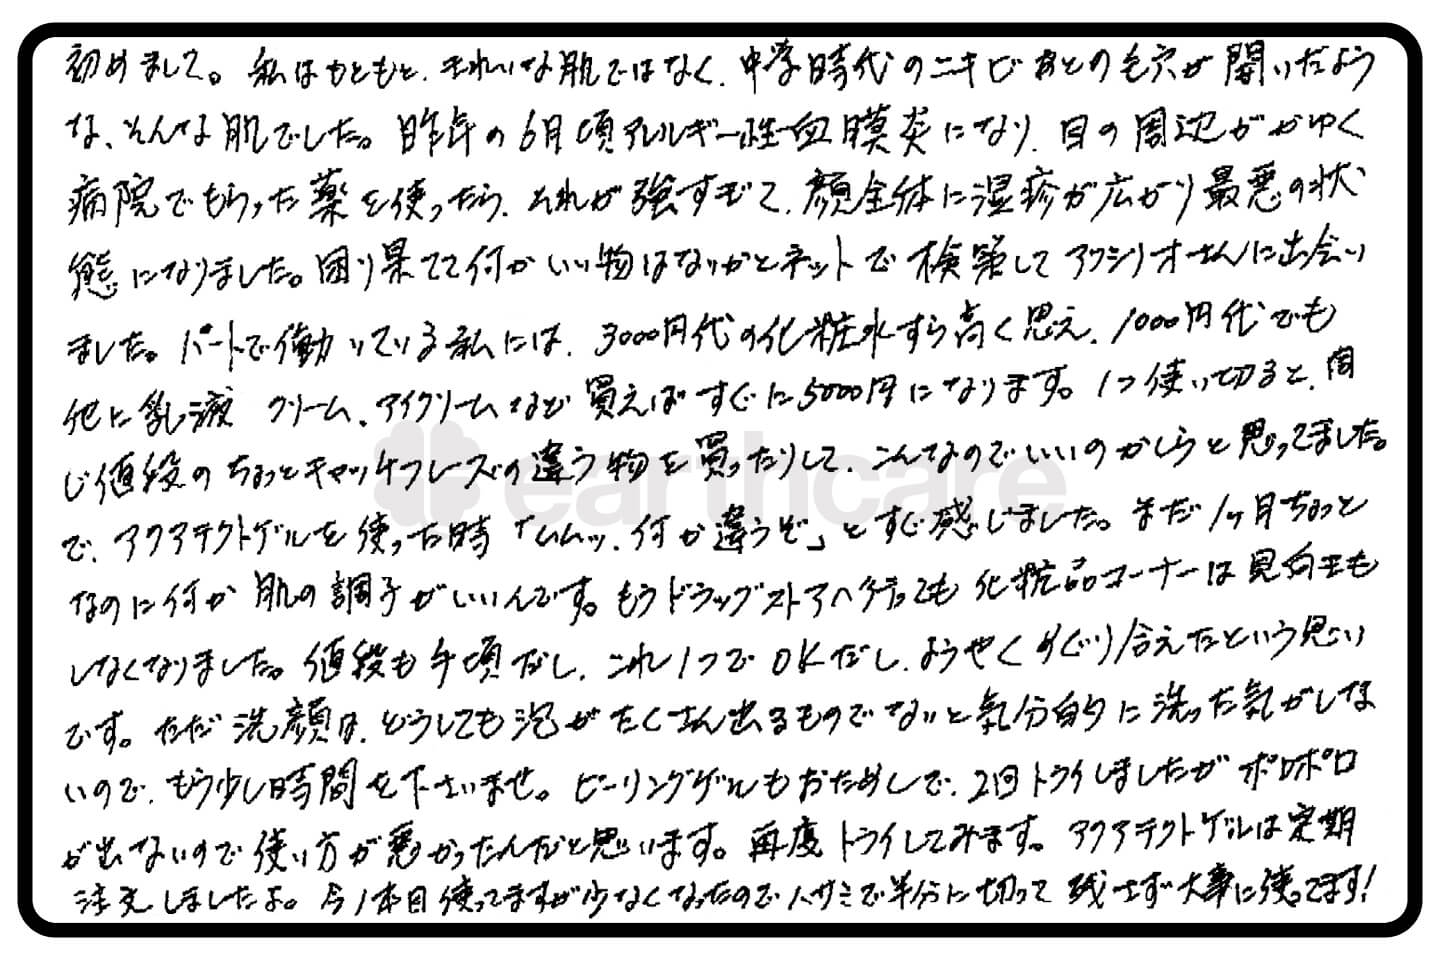 初めまして。私はもともと、きれいな肌ではなく、中学時代のニキビあとの毛穴が開いたよう
な、そんな肌でした。昨年の6月頃アレルギー性血膜炎になり、目の周辺がかゆく
病院でもらった薬を使ったら、それが強すぎて、顔全体に湿疹が広がり最悪の状
態になりました。困り果てて何かいい物はないかとネットで検策してアクシリオさんに出会い
ました。パートで働いている私には、3000円代の化粧水すら高く思え、1000円代でも
他に乳液 クリーム、アイクリームなど買えばすぐに5000円になります。1つ使い切ると、同
じ値段のちょっとキャッチフレーズの違う物を買ったりして、こんなのでいいのかしらと思ってました。
で、アクアテクトゲルを使った時「ムムッ、何か違うぞ」とすぐ感じました。まだ1ヶ月ちょっと
なのに何か肌の調子がいいんです。もうドラッグストアへ行っても化粧品コーナーは見向きも
しなくなりました。値段も手頃だし、これ1つでOKだし、ようやくめぐり合えたという思い
です。ただ洗顔は、どうしても泡がたくさん出るものでないと気分的に洗った気がしな
いので、もう少し時間を下さいませ。ピーリングゲルもおためしで、2回トライしましたがポロポロ
が出ないので使い方が悪かったんだと思います。再度トライしてみます。アクアテクトゲルは定期
注文しましたよ。今1本目使ってますが少なくなったのでハサミで半分に切って残さず大事に使ってます!
earthcare